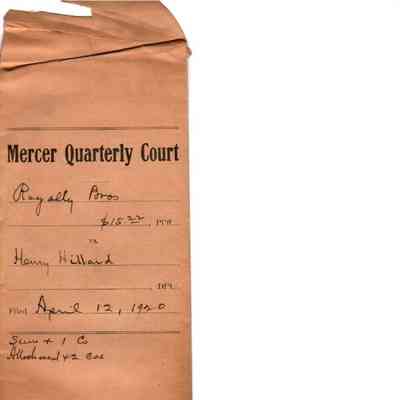 Mercer Quarterly Court
Royalty Bros
$15.22, PTF
vs
Henry Hillard
, DFT.
Filed April 12, 1920
3 + 1 Co
Attachment 42